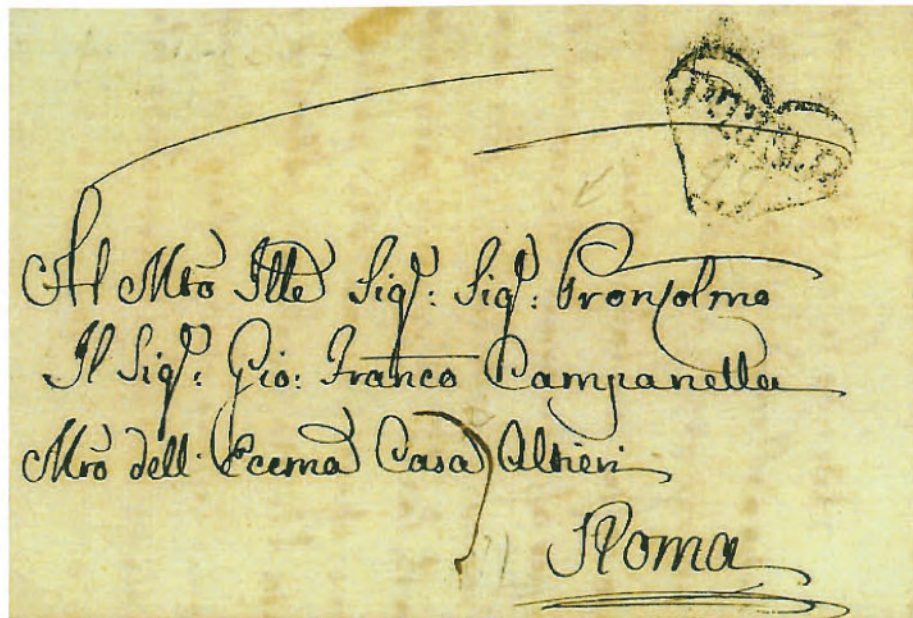 Al Mto Ille Sigr: Sigr: Pronsolmo
Il Sigr: Gio: Franco Campanella
Mro dell' Ecema Casa Altieri
Roma